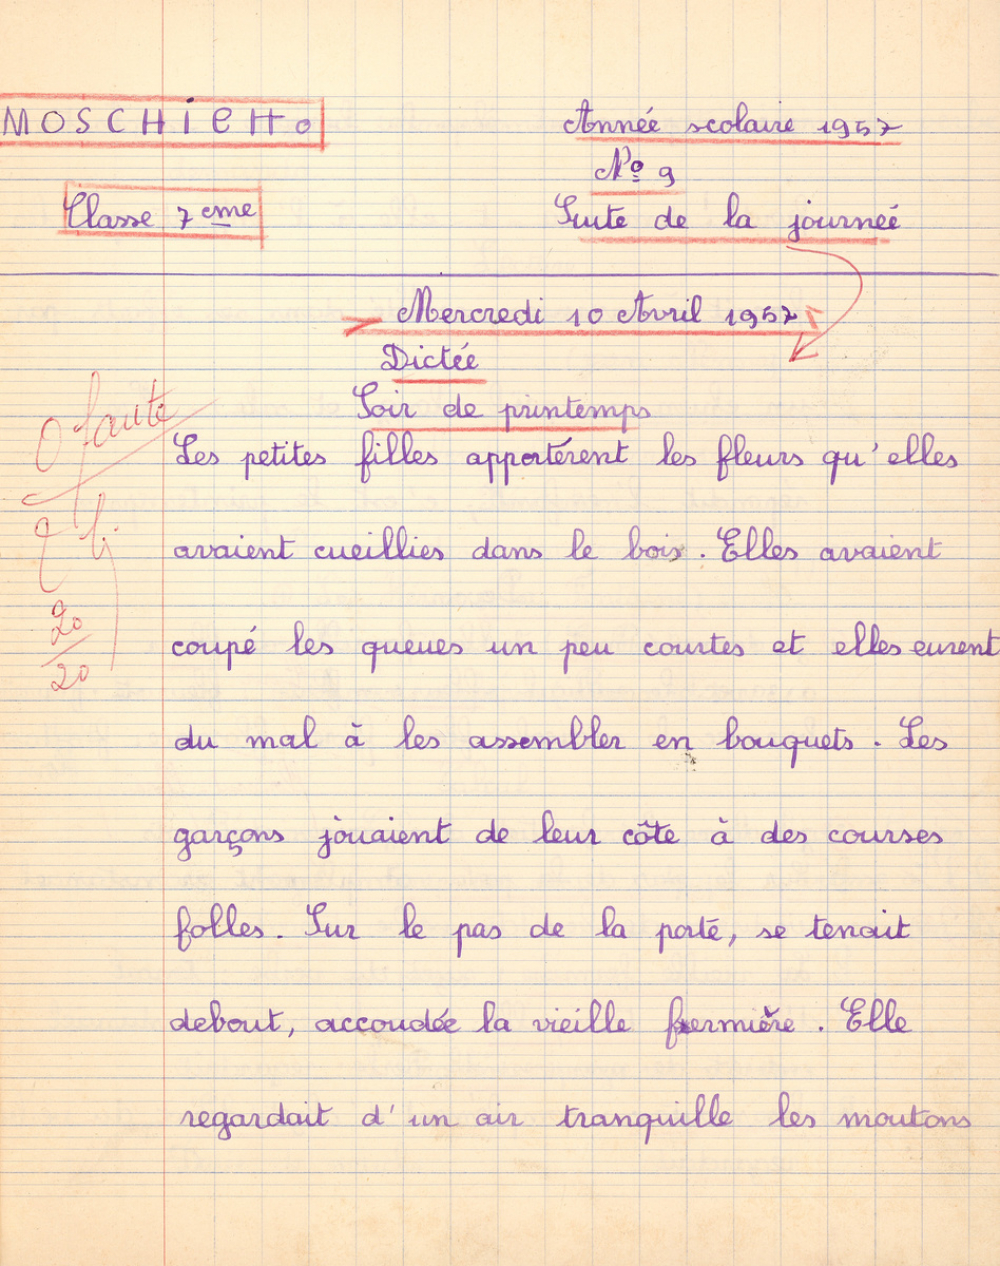 MOSCHiEHo
Année scolaire 1957
Nº 9
Classe 7eme
Suite de la journeé
Mercredi 10 Avril 1957
Dictée
Soir de printemps
0 faute
Les petites filles apportèrent les fleurs qu'elles
avaient cueillies dans le bois. Elles avaient
coupé les queues un peu courtes et elles eurent
du mal à les assembler en bouquets. Les
20
20
garçons jouaient de leur côte à des courses
folles. Sur le pas de la porte, se tenait
debout, accoudée la vieille fermière. Elle
regardait d'un air tranquille les moutons